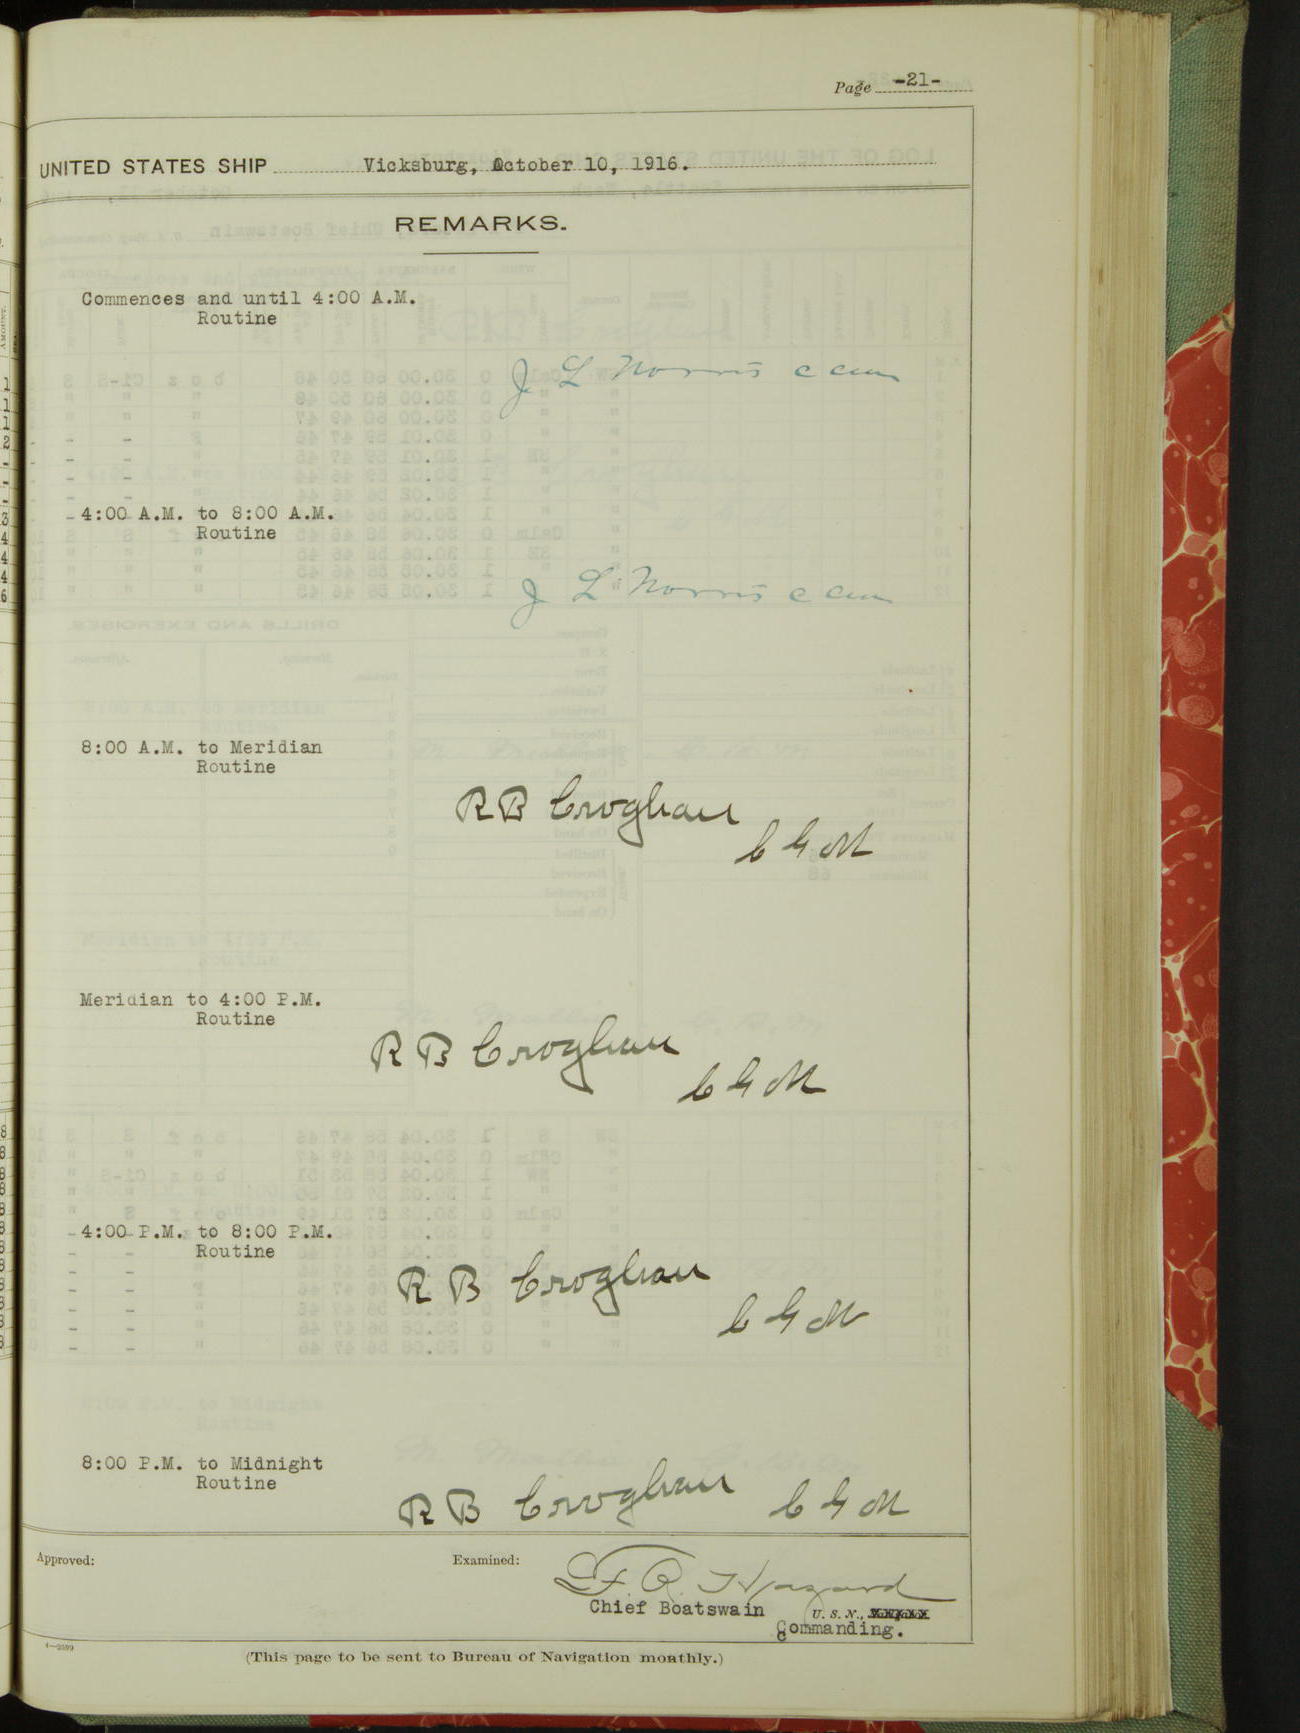 Page -21-
UNITED STATES SHIP Vicksburg, October 10, 1916.
REMARKS.
Commences and until 4:00 A.M.
Routine
J L Norris c cm
4:00 A.M. to 8:00 A.M.
Routine
J L Norris c cm
8:00 A.M. to Meridian
Routine
R B Croghan
C G M
Meridian to 4:00 P.M.
Routine
R B Croghan
C G M
4:00 P.M. to 8:00 P.M.
Routine
R B Croghan
C G M
8:00 P.M. to Midnight
Routine
R B Croghan C G M
Approved: Examined: F. R. Hazard
Chief Boatswain U. S. N.,
Commanding.
4—2599
(This page to be sent to Bureau of Navigation monthly.)